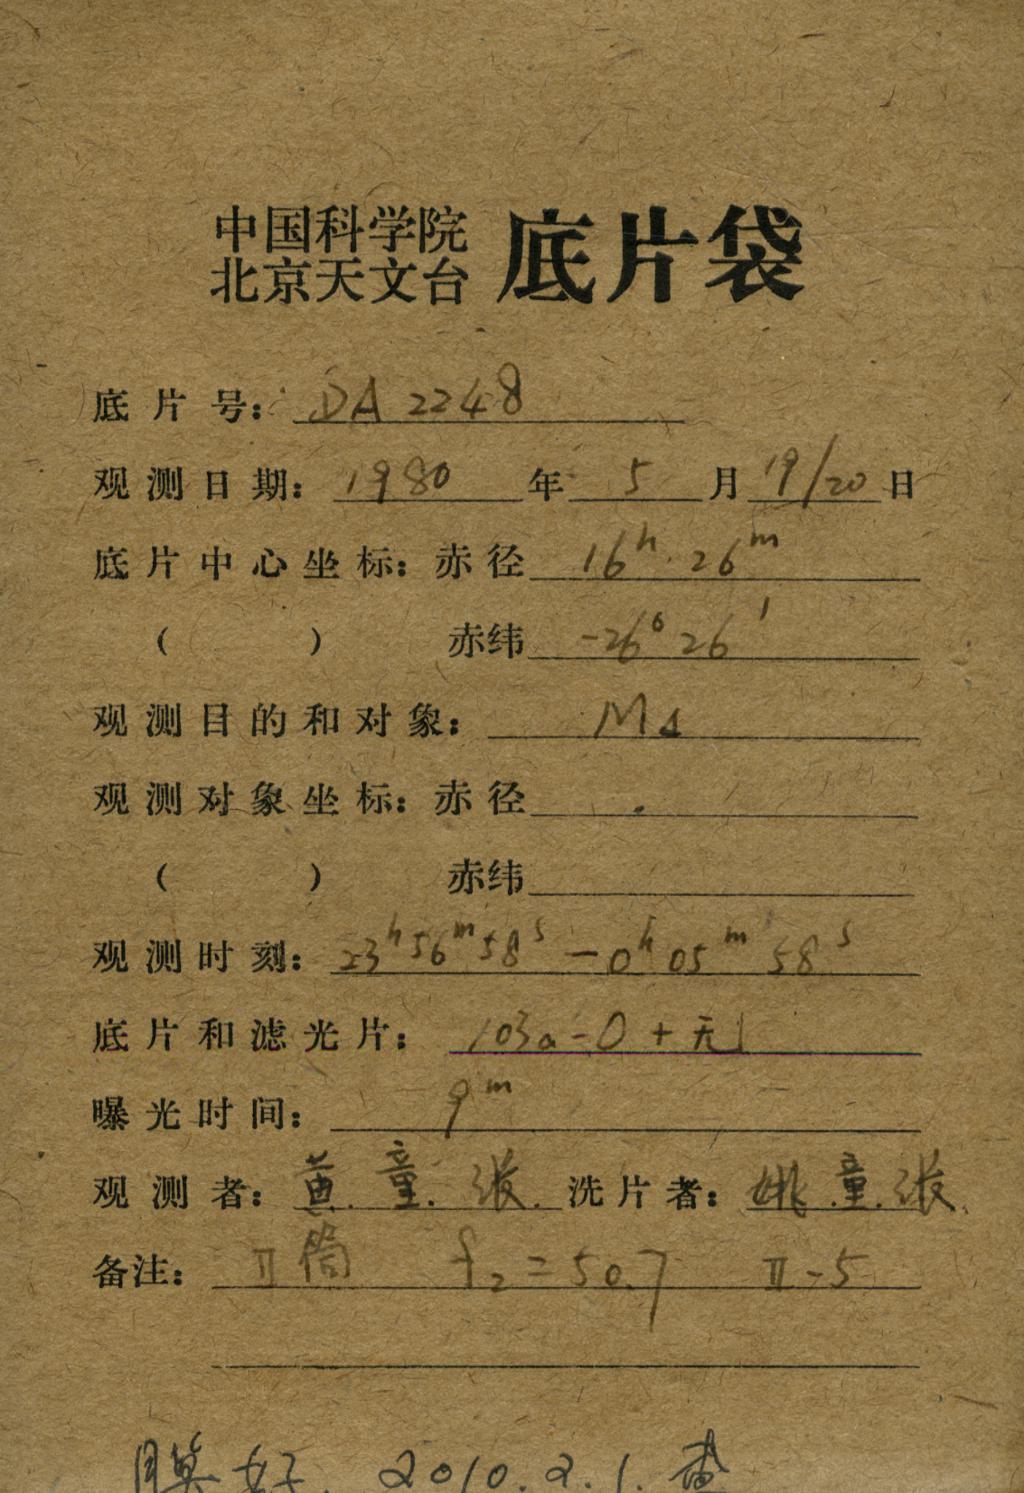 中国科学院
北京天文台 底片袋
底片号: DA 2248
观测日期: 1980 年 5 月 19/20 日
底片中心坐标: 赤径 16h 26m
( ) 赤纬 -26° 26'
观测目的和对象: M4
观测对象坐标: 赤径
( ) 赤纬
观测时刻: 23h56m58s — 0h05m58s
底片和滤光片: 103a-O + 无
曝光时间: 9m
观测者: 黄.童.张. 洗片者: 姚.童.张.
备注: II筒 f₂=50.7 II-5
膜好. 2010.2.1. 查